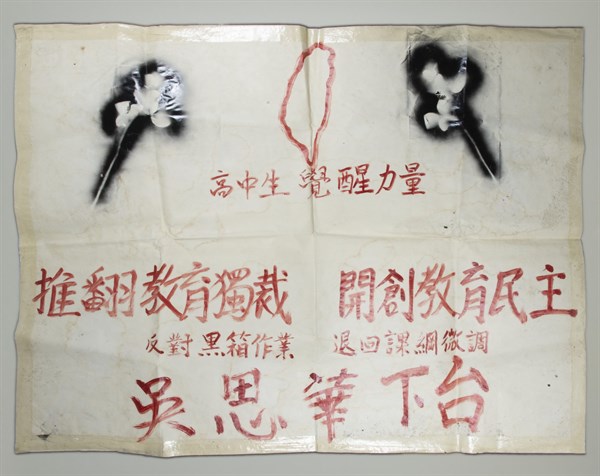 高中生覺醒力量
推翻教育獨裁 開創教育民主
反對黑箱作業 退回課綱微調
吳思華下台